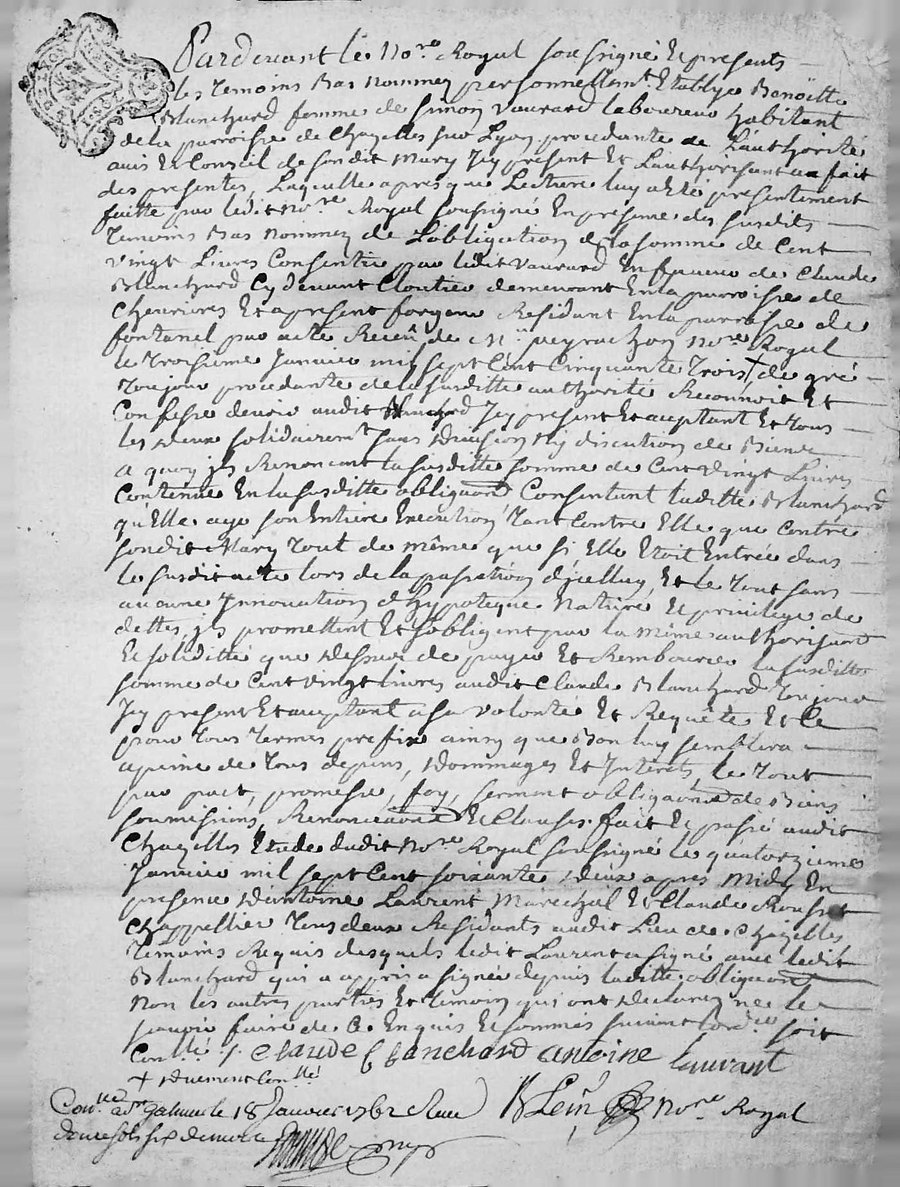 Pardevant le No.re Royal soussigné Et presents
les Temoins Bas nommez personnellem.t Etablye Benoitte
Blanchard femme de Simon Vaurard laboureur habitant
de la parroisse de Chazelles sur Lyon procedante de L'authorité
avis Et Conseil de sondit Mary Icy present Et L'authorisant au fait
des presentes, Laquelle apres que Lecture luy a Eté presentement
faitte par ledit No.re Royal soussigné En presence des susdits
Temoins Bas nommez de L'obligation de la somme de Cent
vingt Livres Consentie par ledit Vaurard En faveur de Claude
Blanchard Cy devant Cloutier demeurant En la parroisse de
Chevrieres Et a present forgeur Residant En la parroisse de
fontanel par acte Receu de M.e peyrachon No.re Royal
le Troisieme Janvier mil sept Cent Cinquante Trois + de gré
Toujour procedante de la susditte authorité Reconnoit Et
Confesse devoir audit Blanchard Icy present Et acceptant Et Tous
les deux solidairem.t sans division Ny discution de Biens
a quoy ils Renoncent la susditte somme de Cent vingt Livres
Contenue En la susditte obligaon Consentant laditte Blanchard
qu'Elle aye son Entiere Execution Tant Contre Elle que Contre
sondit Mary Tout de même que si Elle Etoit Entrée dans
le susdit acte lors de la passation d'jcelluy, Et le Tout sans
aucune Innovation d'hypoteque Nature Et privilege de
dettes, jls promettent Et s'obligent par la même authorisant
Et soliditté que dessus de payer Et Rembourcer la susditte
somme de Cent vingt Livres audit Claude Blanchard Toujour
Icy present Et acceptant a sa volonté Et Requête Et Ce
pour Tous Termes prefix ainsy que Bon luy semblera
a peine de Tous depens, Dommages Et Interets, le Tout
par pact, promesse, foy, serment obligaons de Biens
soumissions, Renonciaons Et Clauses. fait Et passé audit
Chazelles Etude dudit No.re Royal soussigné le quatorzieme
Janvier mil sept Cent soixante deux apres Midy En
presence d'antoine Laurent Maréchal Et Claude Rousset
Chappellier Tous deux Residants audit Lieu de Chazelles
Temoins Requis desquels ledit Laurent a signé avec ledit
Blanchard qui a appris a signer depuis laditte obligaon
Non les autres parties Et Temoin qui ont declarez ne le
savoir faire de Ce Enquis Et sommés suivant l'ord.ce soit
Con.llé ./. Claude Blanchard antoine laurant
+ duement Con.llé
Con.llé a S.t Galmier le 18 Janvier 1762 Reçu No.re Royal
douze sols six deniers